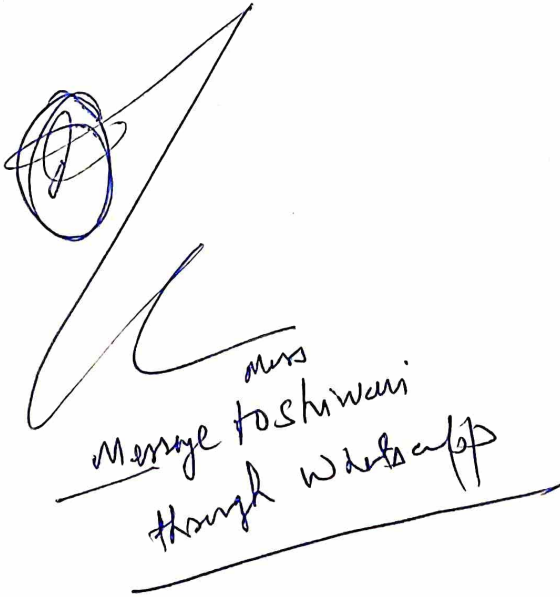 Miss
Message to Shiwani
through Whatsapp